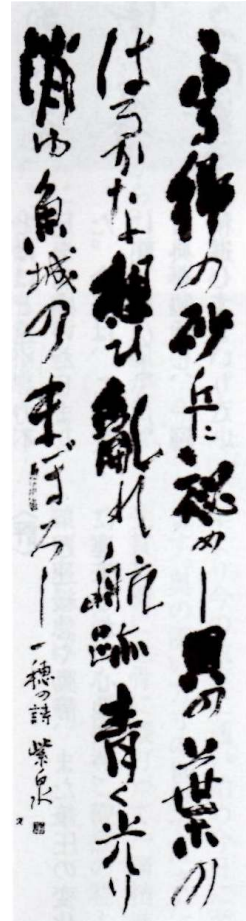 故郷の砂丘に秘めし貝の葉の
はるかなる想ひ亂れ航跡青く光り
消ゆ魚城のまぼろし
一穂の詩 紫泉